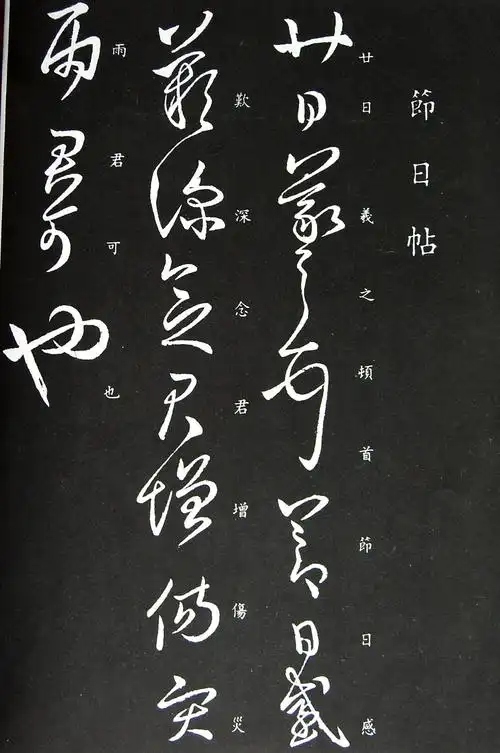 節日帖
廿日羲之頓首節日感
歎深念君增傷災
雨君可也